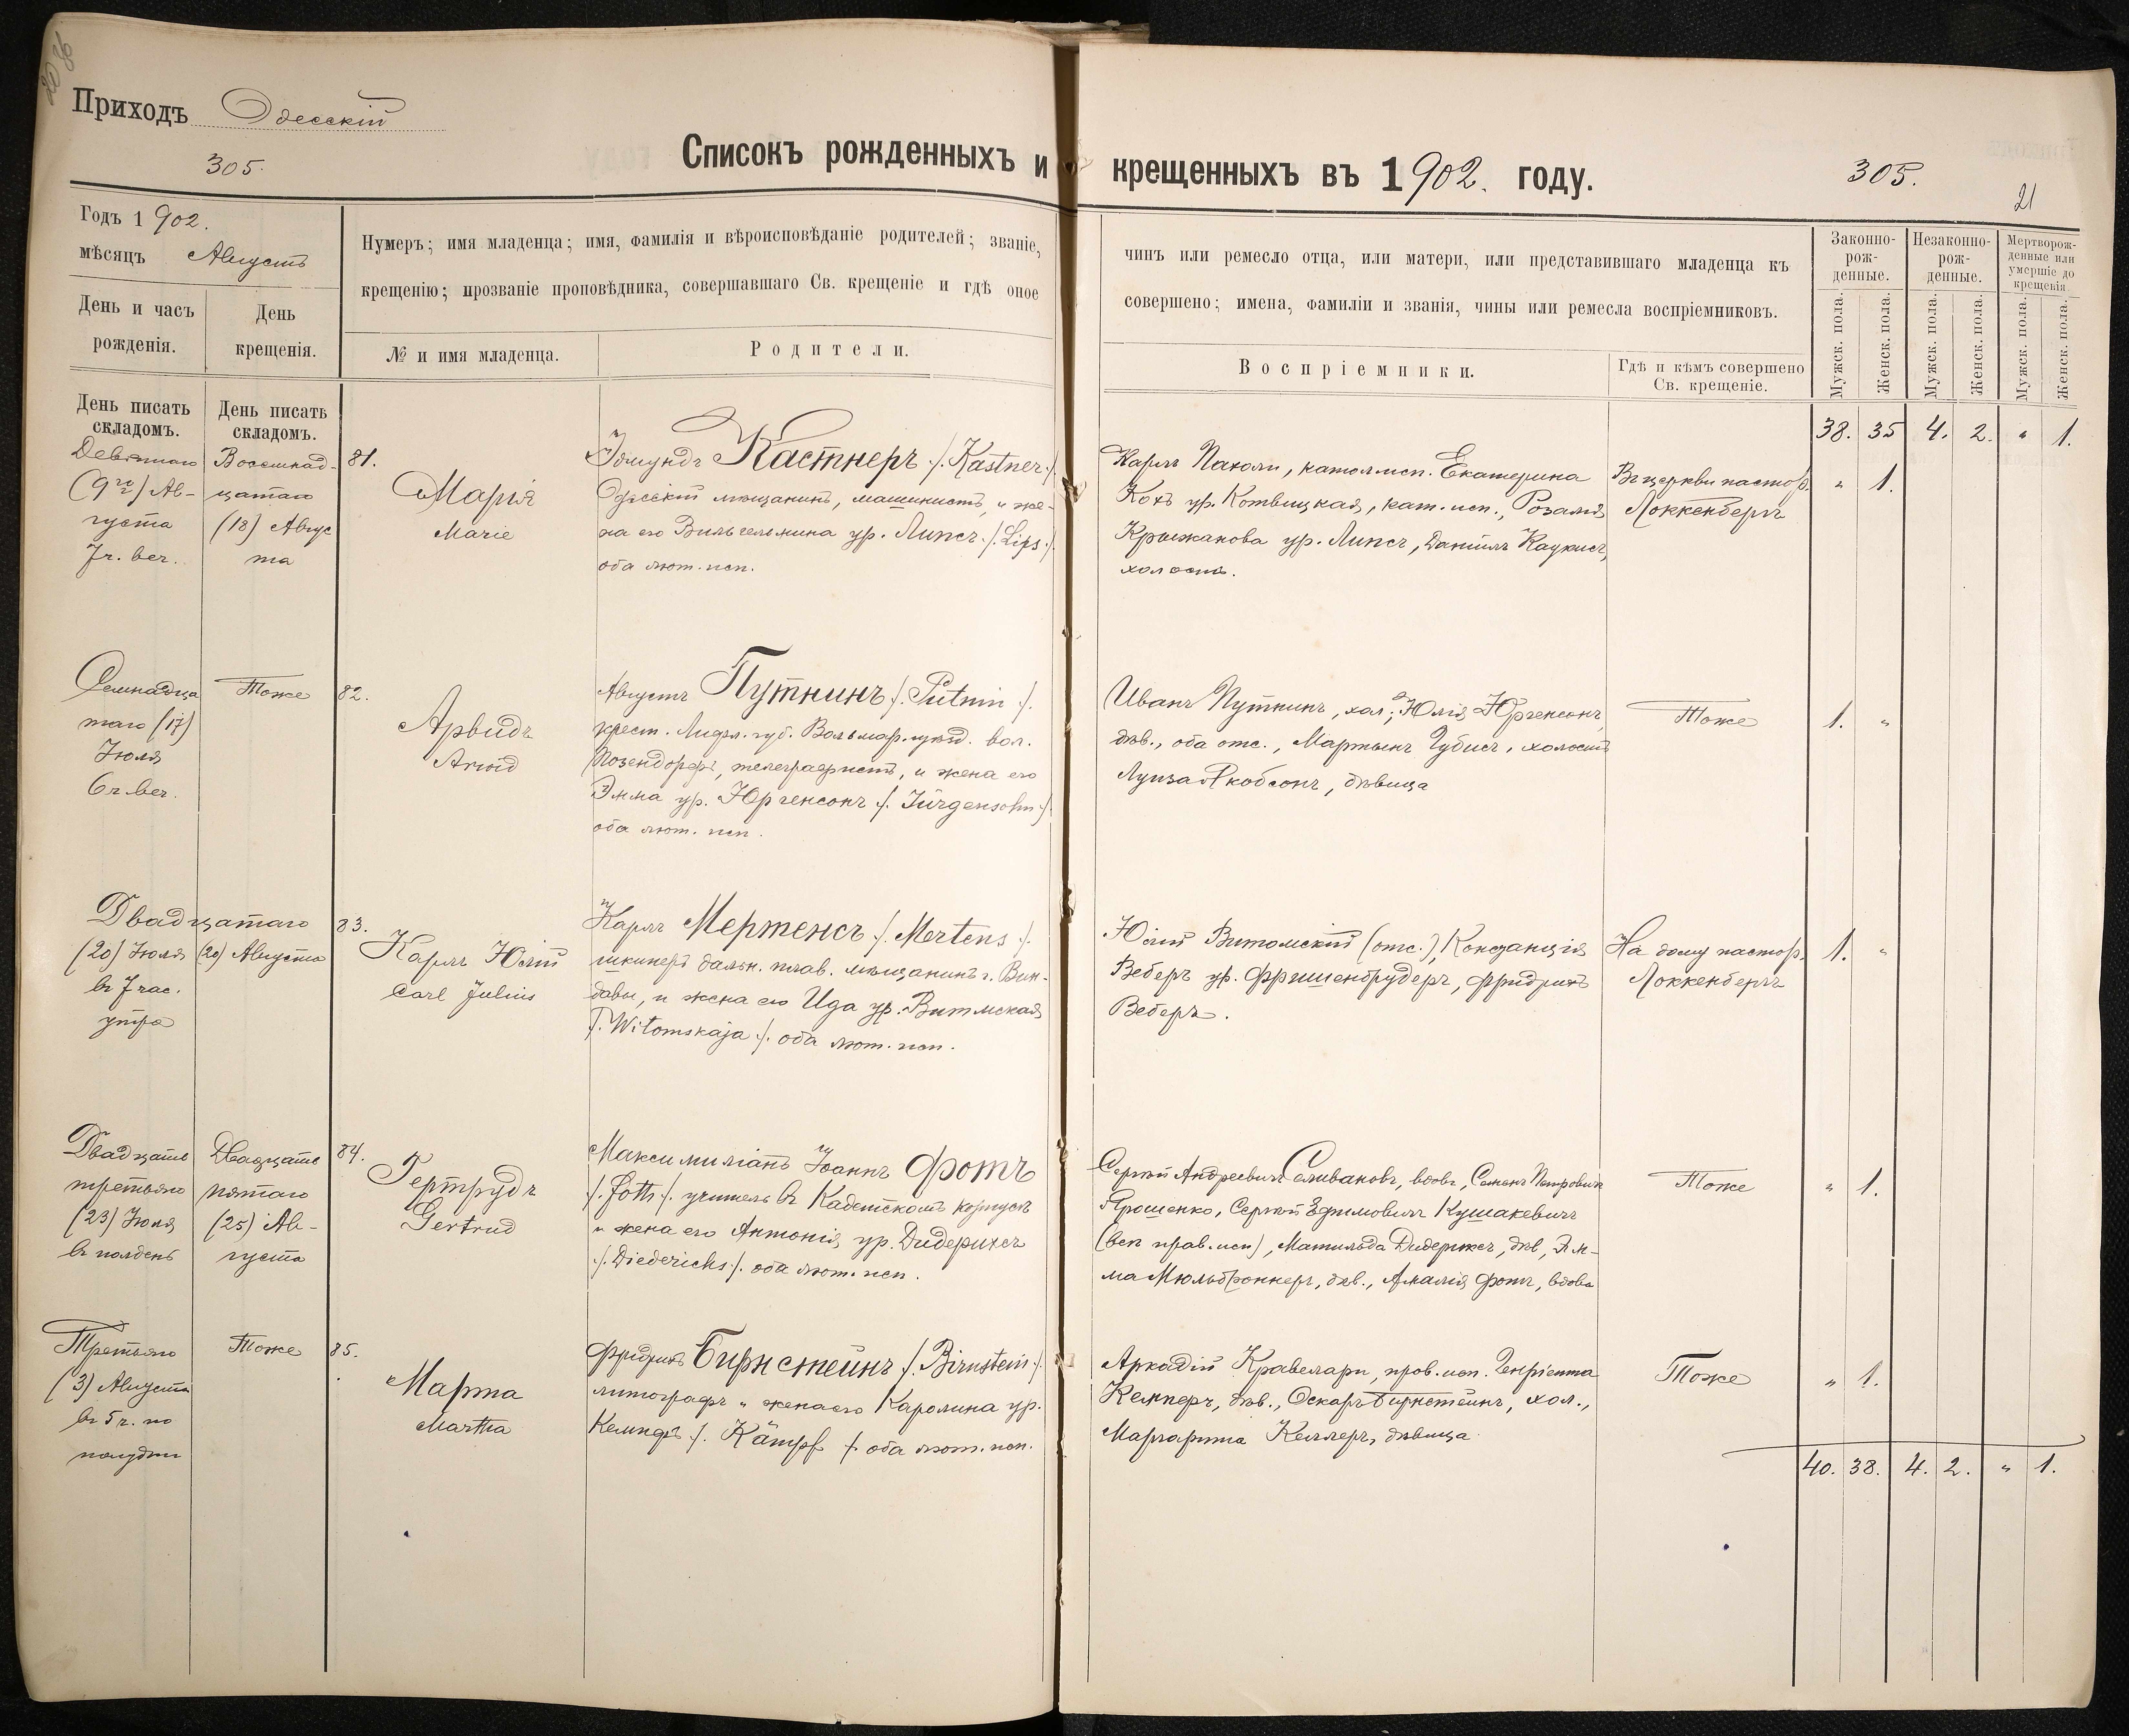 Приходъ Одесскій
305.
Списокъ рожденныхъ и крещенныхъ въ 1902. году.
305.
21
Годъ 1902.
мѣсяцъ Августъ
День и часъ рожденія.
День крещенія.
Нумеръ; имя младенца; имя, фамилія и вѣроисповѣданіе родителей; званіе,
крещенію; прозваніе проповѣдника, совершавшаго Св. крещеніе и гдѣ оное
№ и имя младенца.
Родители.
чинъ или ремесло отца, или матери, или представившаго младенца къ
совершено; имена, фамиліи и званія, чины или ремесла воспріемниковъ.
Воспріемники.
Гдѣ и кѣмъ совершено
Св. крещеніе.
Законно-
рож-
денные.
Незаконно-
рож-
денные.
Мертворож-
денные или
умершіе до
крещенія.
Мужск. пола.
Женск. пола.
Мужск. пола.
Женск. пола.
Мужск. пола.
Женск. пола.
День писать
складомъ.
День писать
складомъ.
38. 35 4. 2. „ 1.
Девятаго
(9го) Ав-
густа
7ч. веч.
Восемнад-
цатаго
(18) Авгус
та
81.
Марія
Marie
Эдмундъ Кастнеръ ./. Kastner ./.
Одесскій мѣщанинъ, машинистъ, и же-
на его Вильгельмина ур. Липсъ ./. Lips ./.
оба лют. исп.
Карлъ Паколи, катол. исп. Екатерина
Кохъ ур. Котвицкая, кат. исп., Розалія
Крыжанова ур. Липсъ, Даніилъ
холостъ.
Въ церкви пастор.
Локкенбергъ
„ 1.
Семнадца
таго (17)
Іюля
6ч. веч.
Тоже
82.
Арвидъ
Arwid
Августъ Путнинъ ./. Putnin ./.
крест. Лифл. губ. Вольмар. уѣзд. вол.
Позендорфъ, телеграфистъ, и жена его
Эмма ур. Юргенсонъ ./. Jürgensohn ./.
оба лют. исп.
Иванъ Путнинъ, хол., Юлія Юргенсонъ,
дѣв., оба отс., Мартынъ Губисъ, холостъ
Луиза Якобсонъ, дѣвица
Тоже
1. „
Двадцатаго
(20) Іюля
въ 7 час.
утра
(20) Августа
83.
Карлъ Юлій
Carl Julius
Карлъ Мертенсъ ./. Mertens ./.
шкиперъ дальн. плав. мѣщанинъ г. Вин-
давы, и жена его Ида ур. Витмская
./. Witomskaja ./. оба лют. исп.
Юлій Витомскій (отс.), Констанція
Веберъ ур. Фришенбрудеръ, Фридрихъ
Веберъ.
На дому пастор.
Локкенбергъ
1. „
Двадцать
третьяго
(23) Іюля
въ полдень
Двадцать
пятаго
(25) Ав-
густа
84.
Гертрудъ
Gertrud
Максимиліанъ Іоаннъ Фотъ
./. Foth ./. учитель въ Кадетскомъ корпусѣ
и жена его Антонія ур. Дидерихсъ
./. Diederichs ./. оба лют. исп.
Сергѣй Андреевичъ Селивановъ, вдовъ, Семенъ Петровичъ
Ярошенко, Сергѣй Ефимовичъ Кушакевичъ
(всѣ прав. исп), Матильда Дидерихсъ, дѣв, Эм-
ма Мюльброннеръ, дѣв., Амалія Фотъ, вдова
Тоже
„ 1.
Третьяго
(3) Августа
въ 5 ч. по
полудни
Тоже
85.
Марта
Martha
Фридрихъ Бирнстейнъ ./. Birnstein ./.
литографъ и жена его Каролина ур.
Кемпфъ ./. Kämpf ./. оба лют. исп.
Аркадій Кравелари, прав. исп. Генріетта
Кемперъ, дѣв., Оскаръ Бирнстейнъ, хол.,
Маргарита Келлеръ, дѣвица.
Тоже
„ 1.
40. 38. 4. 2. „ 1.